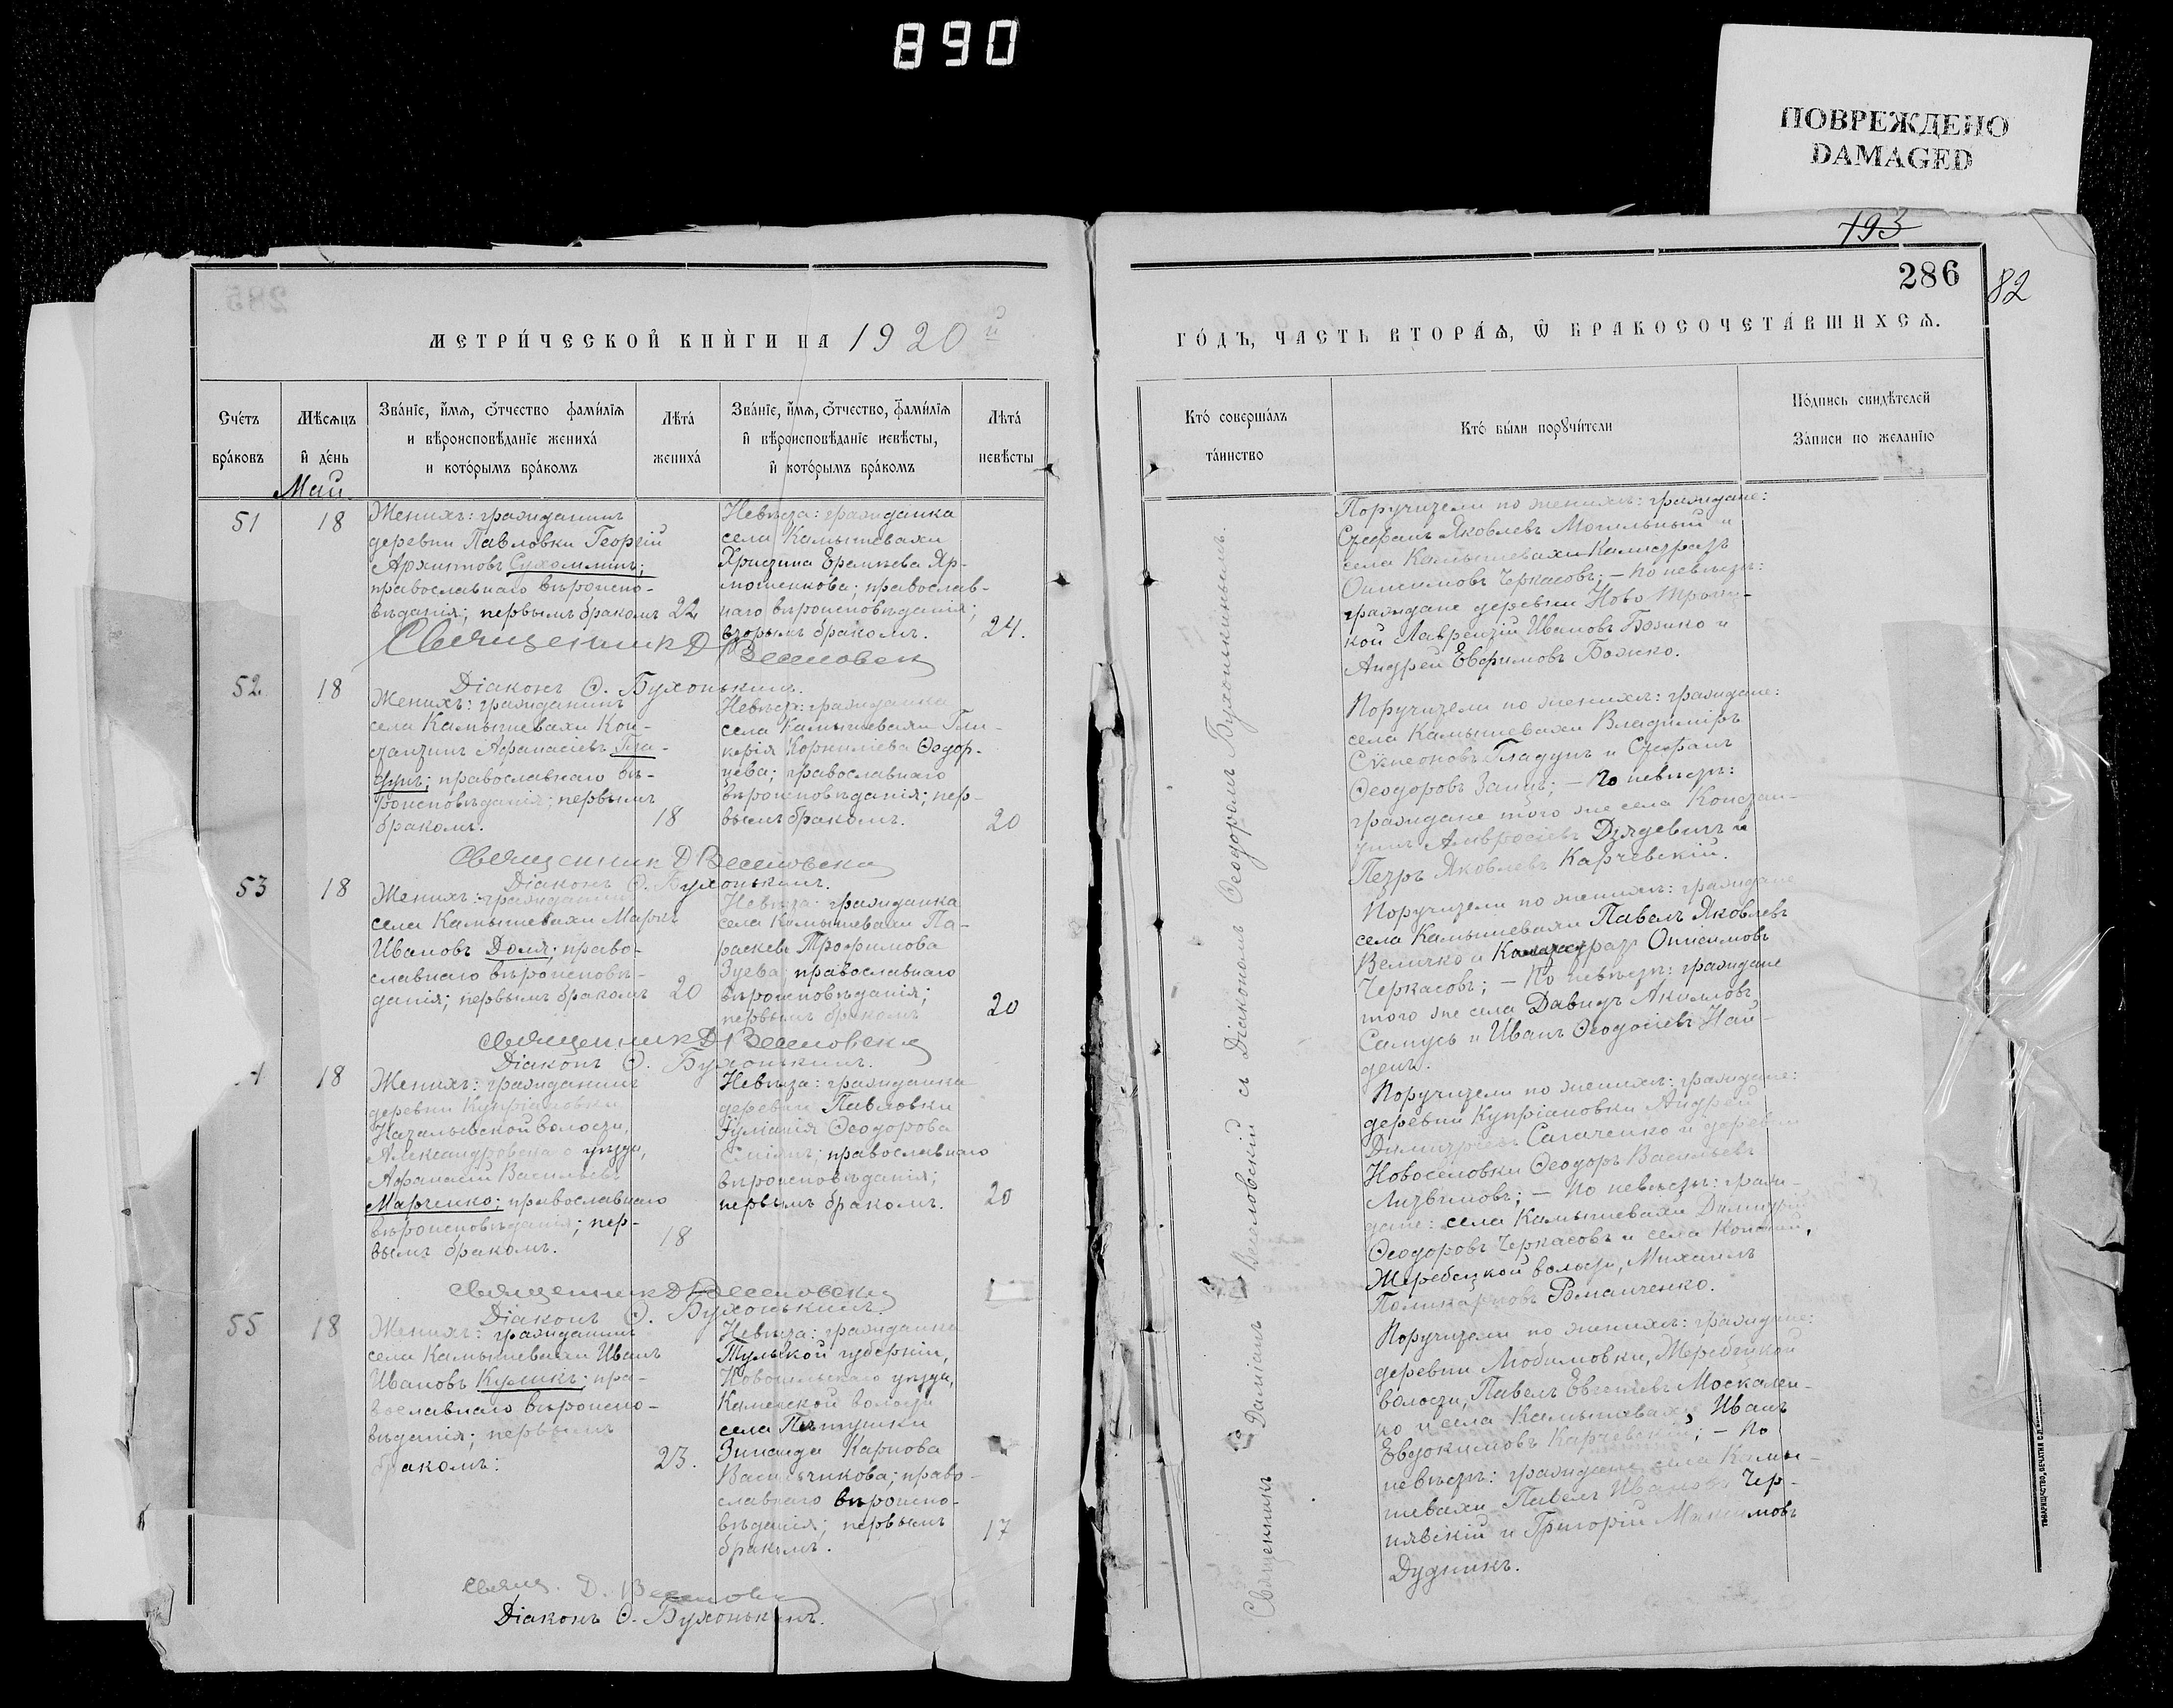 890
ПОВРЕЖДЕНО
DAMAGED
193
286
82
МЕТРИ́ЧЕСКОЙ КНИ́ГИ НА 1920 й
ГО́ДЪ, ЧАСТЬ ВТОРА́Ѧ, Ѿ БРАКОСОЧЕТА́ВШИХСѦ.
Сче́тъ бра́ковъ
Мѣсѧцъ и҆ де́нь
Зва́нїе, и҆́мѧ, ѻ҆́тчество фами́лїѧ и вѣроисповѣ́данїе жениха́ и кото́рымъ бра́комъ
Лѣта́ жениха́
Зва́нїе, и҆́мѧ, ѻ҆́тчество, фами́лїѧ и҆ вѣроисповѣ́данїе невѣ́сты, и҆ кото́рымъ бра́комъ
Лѣта́ невѣ́сты
Кто́ соверша́лъ та́инство
Кто́ бы́ли порꙋчи́тели
По́дпись свидѣ́телей За́писи по жела́нїю
Май.
51
18
Женихъ: гражданинъ
деревни Павловки Георгій
Архиповъ Сухомлинъ;
православнаго вѣроиспо-
вѣданія; первымъ бракомъ 22
Невѣста: гражданка
села Камышевахи
Христина Еремѣева Яр-
мошенкова; православ-
наго вѣроисповѣданія;
вторымъ бракомъ.
24.
Поручители по женихѣ: граждане:
Стефанъ Яковлевъ Могильный и
села Камышевахи Калистратъ
Онисимовъ Черкасовъ; – по невѣстѣ:
граждане деревни Ново Троиц-
кой Лаврентій Ивановъ Божко и
Андрей Евфимовъ Божко.
Священникъ Д Веселовск
Діаконъ Ѳ. Бухонькинъ.
52
18
Женихъ: гражданинъ
села Камышевахи Кон-
стантинъ Афанасіевъ Гла-
дунъ; православнаго вѣ-
роисповѣданія; первымъ
бракомъ.
18
Невѣста: гражданка
села Камышевахи Гли-
керія Корниліева Ѳедор-
цева; православнаго
вѣроисповѣданія; пер-
вымъ бракомъ.
20
Поручители по женихѣ: граждане:
села Камышевахи Владиміръ
Сѵмеоновъ Гладунъ и Стефанъ
Ѳеодоровъ Заицъ; – По невѣстѣ:
граждане того же села Констан-
тинъ Амвросіевъ Дзядевичъ и
Петръ Яковлевъ Карчевскій.
Священник Д Веселовски
Діаконъ Ѳ. Бухонькинъ.
53
18
Женихъ: гражданинъ
села Камышевахи Маркъ
Ивановъ Доля; право-
славнаго вѣроисповѣ-
данія; первымъ бракомъ
20
Невѣста: гражданка
села Камышевахи Па-
раскева Трофимова
Зуева; православнаго
вѣроисповѣданія;
первымъ бракомъ
20
Поручители по женихѣ: граждане
села Камышевахи Павелъ Яковлевъ
Величко и Онисимовъ
Черкасовъ; – По невѣстѣ: граждане
того же села Давидъ Акимовъ
Самусь и Иванъ Ѳеодосіевъ Най-
денъ.
Священникъ Д Веселовски
Діаконъ Ѳ. Бухонькинъ.
18
Женихъ: гражданинъ
деревни Купріяновки
Натальевской волости,
Александровска о уѣзда,
Афанасій Васильевъ
Марченко; православнаго
вѣроисповѣданія; пер-
вымъ бракомъ.
18
Невѣста: гражданка
деревни Павловки
Іуліанія Ѳеодорова
православнаго
вѣроисповѣданія;
первымъ бракомъ.
20
Поручители по женихѣ: граждане:
деревни Купріановки Андрей
Димитріевъ Сагаченко и деревни
Новоселовки Ѳеодоръ Васильевъ
Литвиновъ; – По невѣстѣ: граж-
дане: села Камышевахи Димитрій
Ѳеодоровъ Черкасовъ и села
Жеребецкой волости, Михаилъ
Поликарповъ Романченко.
Священникъ Д Веселовски
Діаконъ Ѳ. Бухонькинъ.
55
18
Женихъ: гражданинъ
села Камышевахи Иванъ
Ивановъ Куликъ; пра-
вославнаго вѣроиспо-
вѣданія; первымъ
бракомъ:
23.
Невѣста: гражданка
Тульской губерніи,
Новосильскаго уѣзда,
Каменской волости
села Пѣтушки
Зинаида Карпова
Васильчикова; право-
славнаго вѣроиспо-
вѣданія; первымъ
бракомъ.
17
Поручители по женихѣ: граждане:
деревни Любимовки, Жеребецкой
волости, Павелъ Евгеніевъ Москален-
ко и села Камышевахи, Иванъ
Евдокимовъ Карчевскій; – По
невѣстѣ: граждане села Камы-
шевахи Павелъ Ивановъ Чер-
нявскій и Григорій Максимовъ
Дудникъ.
Свящ. Д. Веселовск
Діаконъ Ѳ. Бухонькинъ.
Священникъ Даміанъ Веселовскій съ Діакономъ Ѳеодоромъ Бухонькинымъ.